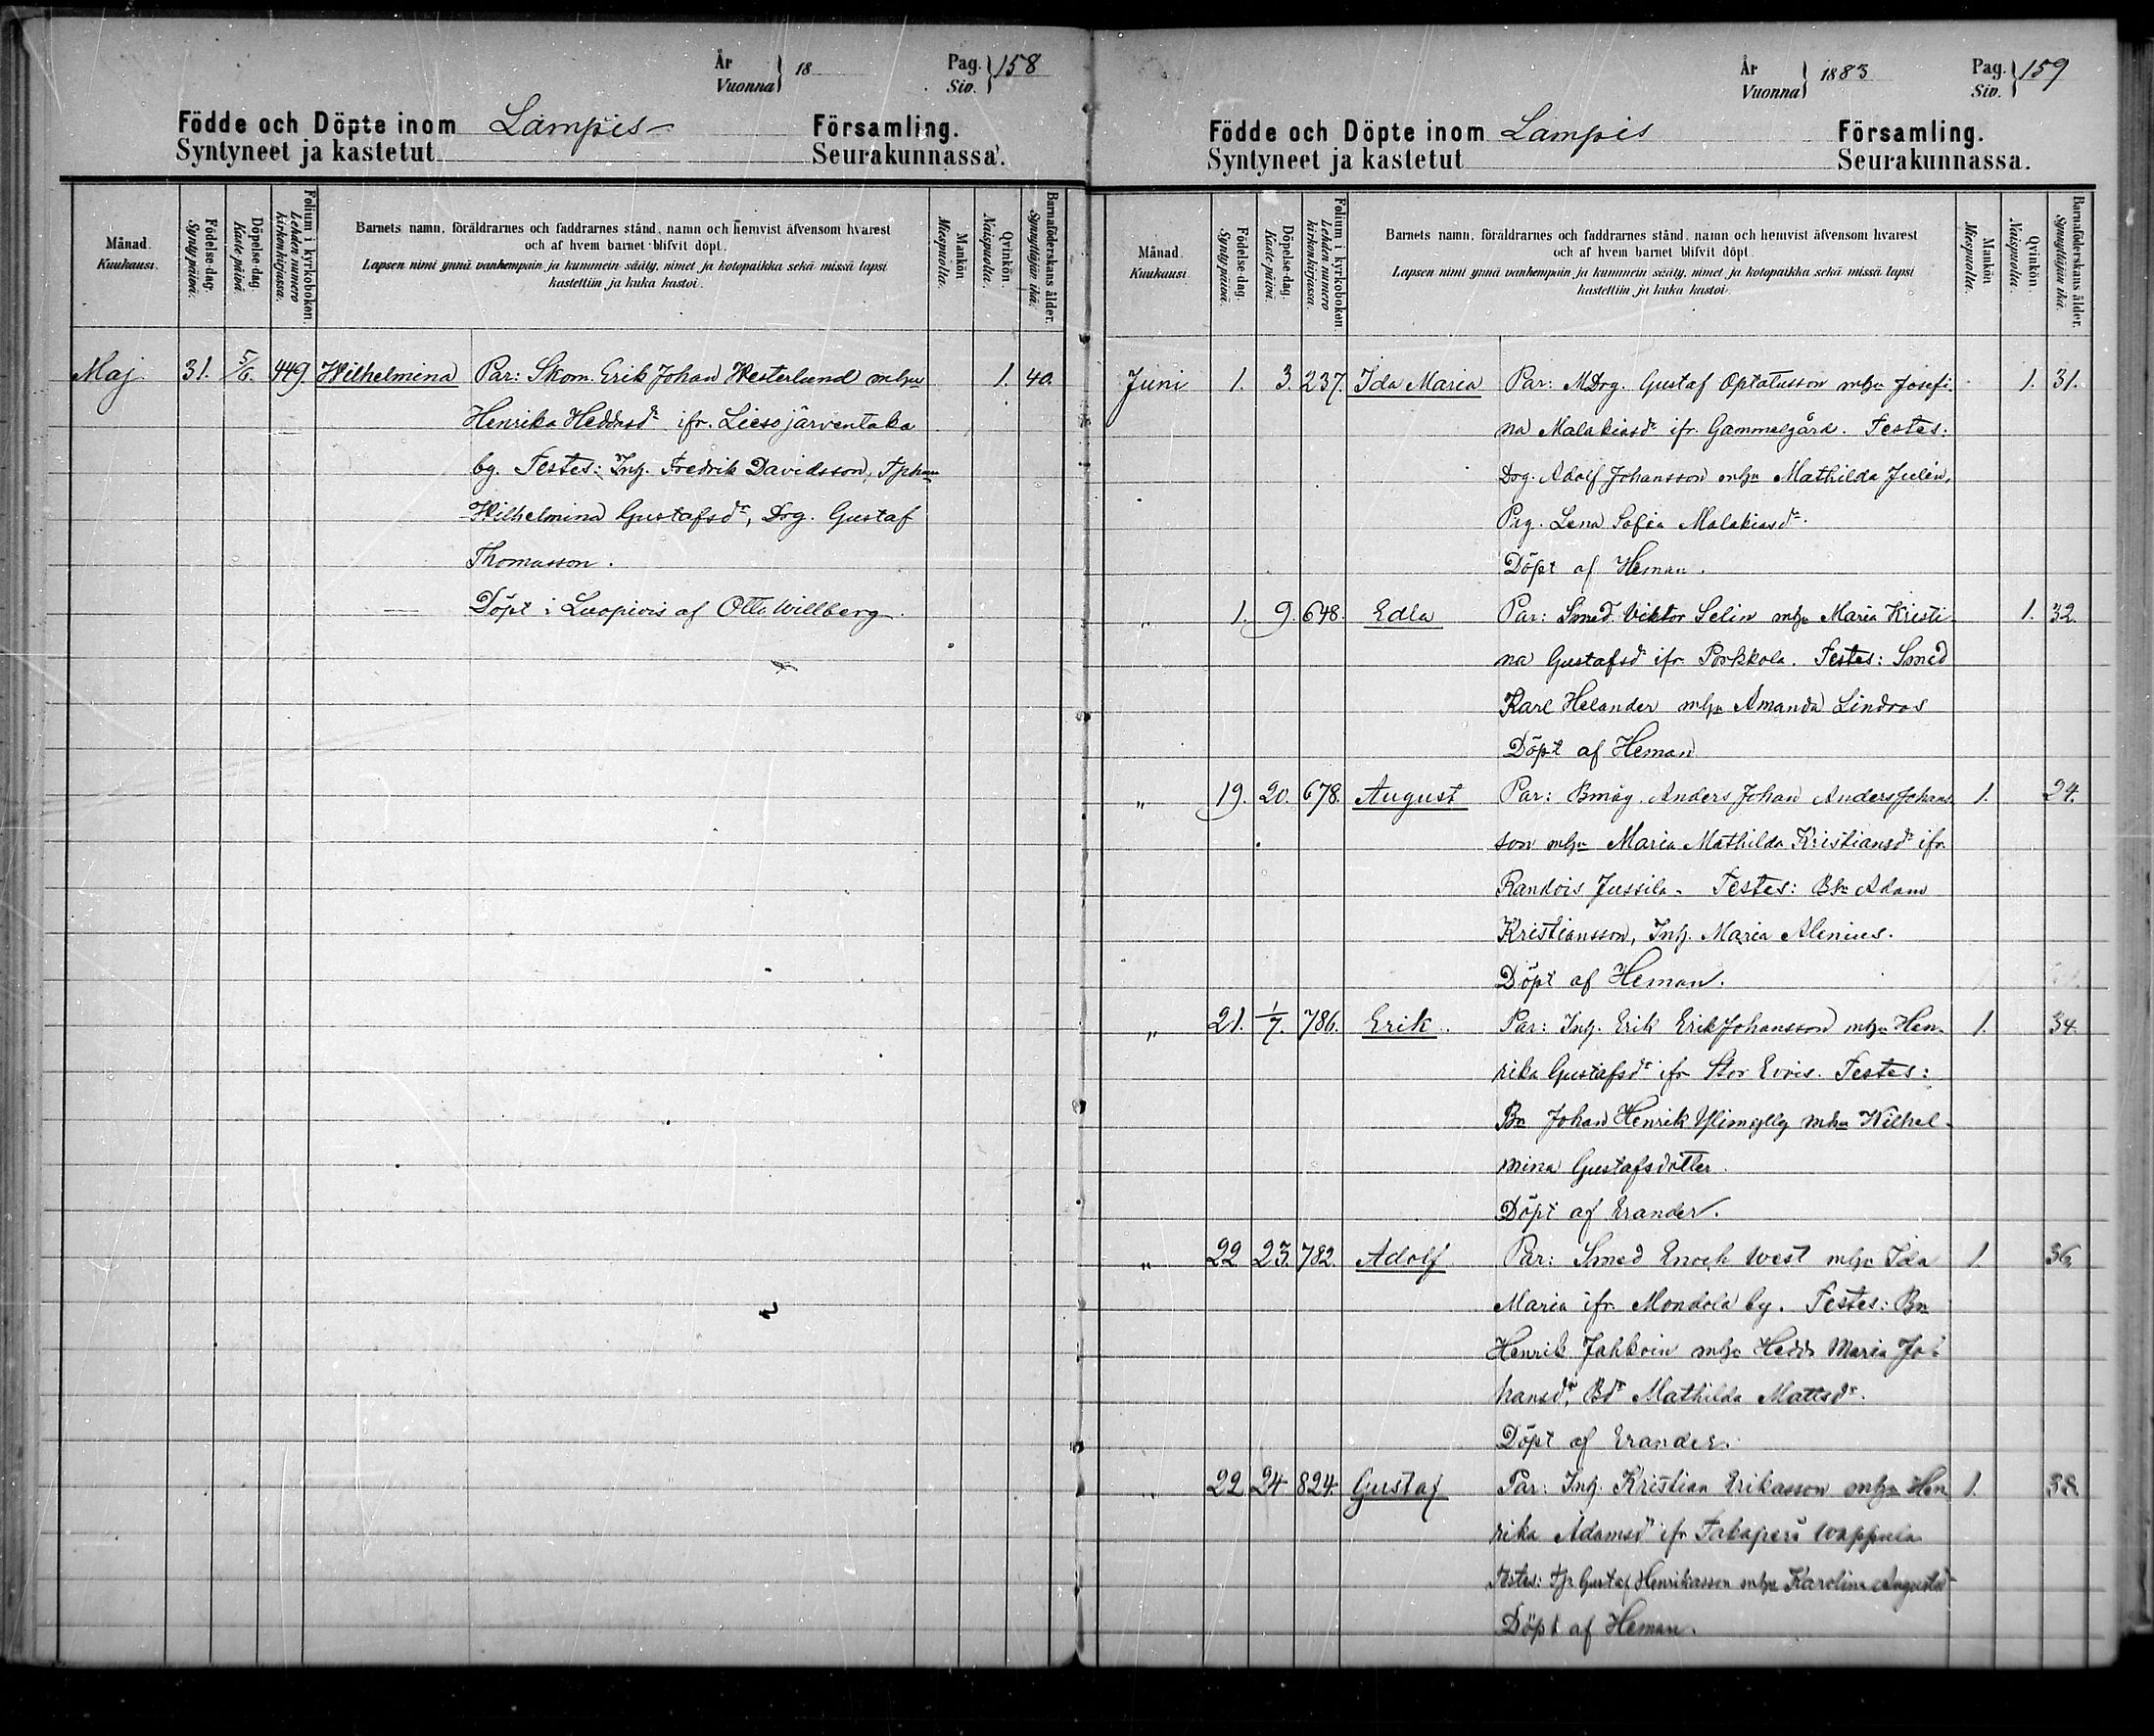 År
Vuonna } 18
Pag.
Siv. } 158
Födde och Döpte inom Lampis Församling.
Syntyneet ja kastetut Seurakunnassa.
Månad.
Kuukausi.
Födelse-dag.
Synty-päivä.
Döpelse-dag.
Kaste-päivä.
Folium i kyrkoboken.
Lehden numero kirkonkirjassa.
Barnets namn, föräldrarnes och faddrarnes stånd, namn och hemvist äfvensom hvarest
och af hvem barnet blifvit döpt.
Lapsen nimi ynnä vanhempain ja kummein sääty, nimet ja kotopaikka sekä missä lapsi
kastettiin ja kuka kastoi.
Mankön.
Miespuolta.
Qvinkön.
Naispuolta.
Barnaföderskans ålder.
Synnyttäjän ikä.
Maj 31. 5/6. 449. Wilhelmina Par: Skom. Erik Johan Westerlund mhu 1. 40.
Henrika Heddasdr ifr. Liesojärventaka
by. Testes: Inh. Fredrik Davidsson,
Wilhelmina Gustafsdr, Drg. Gustaf
Thomasson.
Döpt i Luopiois af Otto Willberg.
År
Vuonna } 1883
Pag.
Siv. } 159
Födde och Döpte inom Lampis Församling.
Syntyneet ja kastetut Seurakunnassa.
Månad.
Kuukausi.
Födelse-dag.
Synty-päivä.
Döpelse-dag.
Kaste-päivä.
Folium i kyrkoboken.
Lehden numero kirkonkirjassa.
Barnets namn, föräldrarnes och faddrarnes stånd, namn och hemvist äfvensom hvarest
och af hvem barnet blifvit döpt.
Lapsen nimi ynnä vanhempain ja kummein sääty, nimet ja kotopaikka sekä missä lapsi
kastettiin ja kuka kastoi.
Mankön
Miespuolta.
Qvinkön.
Naispuolta.
Barnaföderskans ålder.
Synnyttäjän ikä.
Juni 1. 3. 237. Ida Maria Par: MDrg. Gustaf Optatusson mhu Josefi- 1. 31.
na Malakiasdr ifr. Gammelgård. Testes:
Drg. Adolf Johansson mhu Mathilda Julén,
Pig. Lena Sofia Malakiasdr.
Döpt af Heman.
" 1. 9. 648. Edla Par: Smed. Viktor Selin mhu Maria Kristi- 1. 32.
na Gustafsd ifr. Porkkola. Testes: Smed
Karl Helander mhu Amanda Lindroos
Döpt af Heman
" 19. 20. 678. August Par: Bmåg. Anders Johan AndersJohans- 1. 24.
son mhu Maria Mathilda Kristiansdr ifr.
Randois Jussila. Testes: Adam
Kristiansson, Inh. Maria Alenius.
Döpt af Heman.
" 21. 1/7. 786. Erik. Par: Inh. Erik ErikJohansson mhu Hen- 1. 34.
rika Gustafsdr ifr Stor Evois. Testes:
Bn Johan Henrik Ylimylly mhu Wilhel-
mina Gustafsdotter.
Döpt af Erander.
" 22 23. 782. Adolf Par: Smed Enoch West mhu Ida 1. 36.
Maria ifr. Mondola by. Testes: Bn
Henrik Jahkoin mhu Hedda Maria Jo-
hansdr, Bdr Mathilda Mattsdr.
Döpt af Erander.
" 22. 24. 824. Gustaf Par: Inh. Kristian Eriksson mhu Hen- 1. 38.
rika Adamsdr ifr Takaperä Wappula
Testes: Gustaf Henriksson mhu Karolina Augustsd
Döpt af Heman.